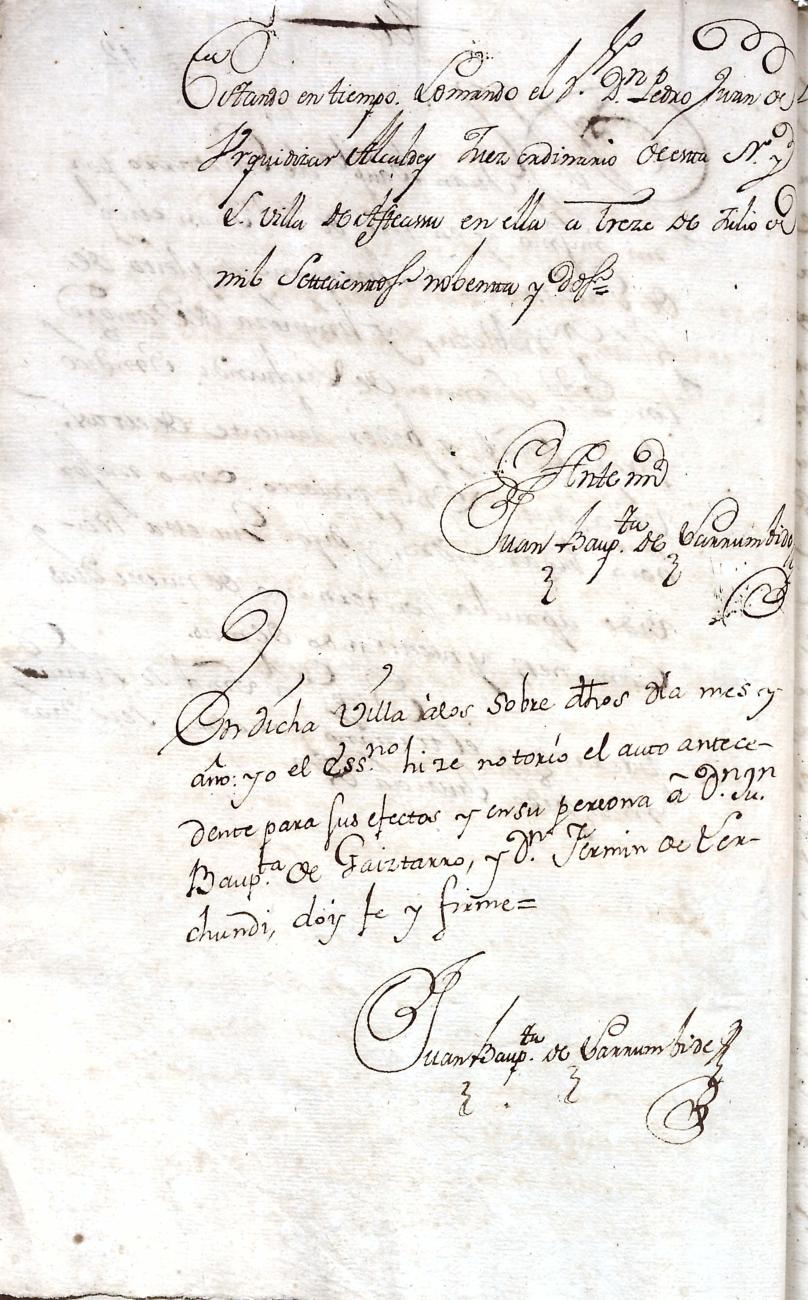 Estando en tiempo. Lo mando el Sr. Dn. Pedro Juan de
Urquidizar Alcalde y Juez ordinario de esta N. y
L. Villa de Asteasu en ella a treze de Julio de
mil Settecientos nobenta y dos=
Ante mi
Juan Baupta. de Larrumbide
En dicha Villa álos sobre dhos dia mes y
año: yo el Essno. hize notorio el auto antece-
dente para sus efectos y en su persona á Dn. Jn.
Baupta. de Gaiztarro, y Dn. Fermin de Ler-
chundi, dóy fe y firme=
Juan Baupta. de Larrumbide